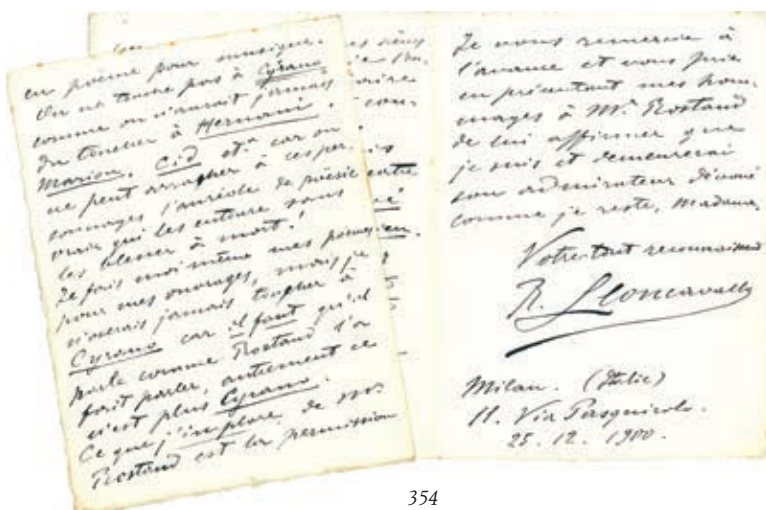 en poème pour musique.
On ne touche pas à Cyrano
comme on n'aurait jamais
du toucher à Hernani.
Marion. Cid etc car on
ne peut arracher à ces per-
sonnages l'auréole de poësie
vraie qui les entoure sans
les blesser à mort!
Je fais moi même mes poèmes
pour mes ouvrages, mais je
n'oserais jamais toucher à
Cyrano car il faut qu'il
parle comme Rostand l'a
fait parler, autrement ce
n'est plus Cyrano.
Ce que j'implore de Mr.
Rostand est la permission
Je vous remercie à
l'avance et vous prie
en présentant mes hom-
mages à Mr. Rostand
de lui affirmer que
je suis et demeurerai
son admirateur dévoué
comme je reste, Madame,
Votre tout reconnaissant
R. Leoncavallo
Milan. (Italie)
11. Via Pasquirolo.
25. 12. 1900.
354